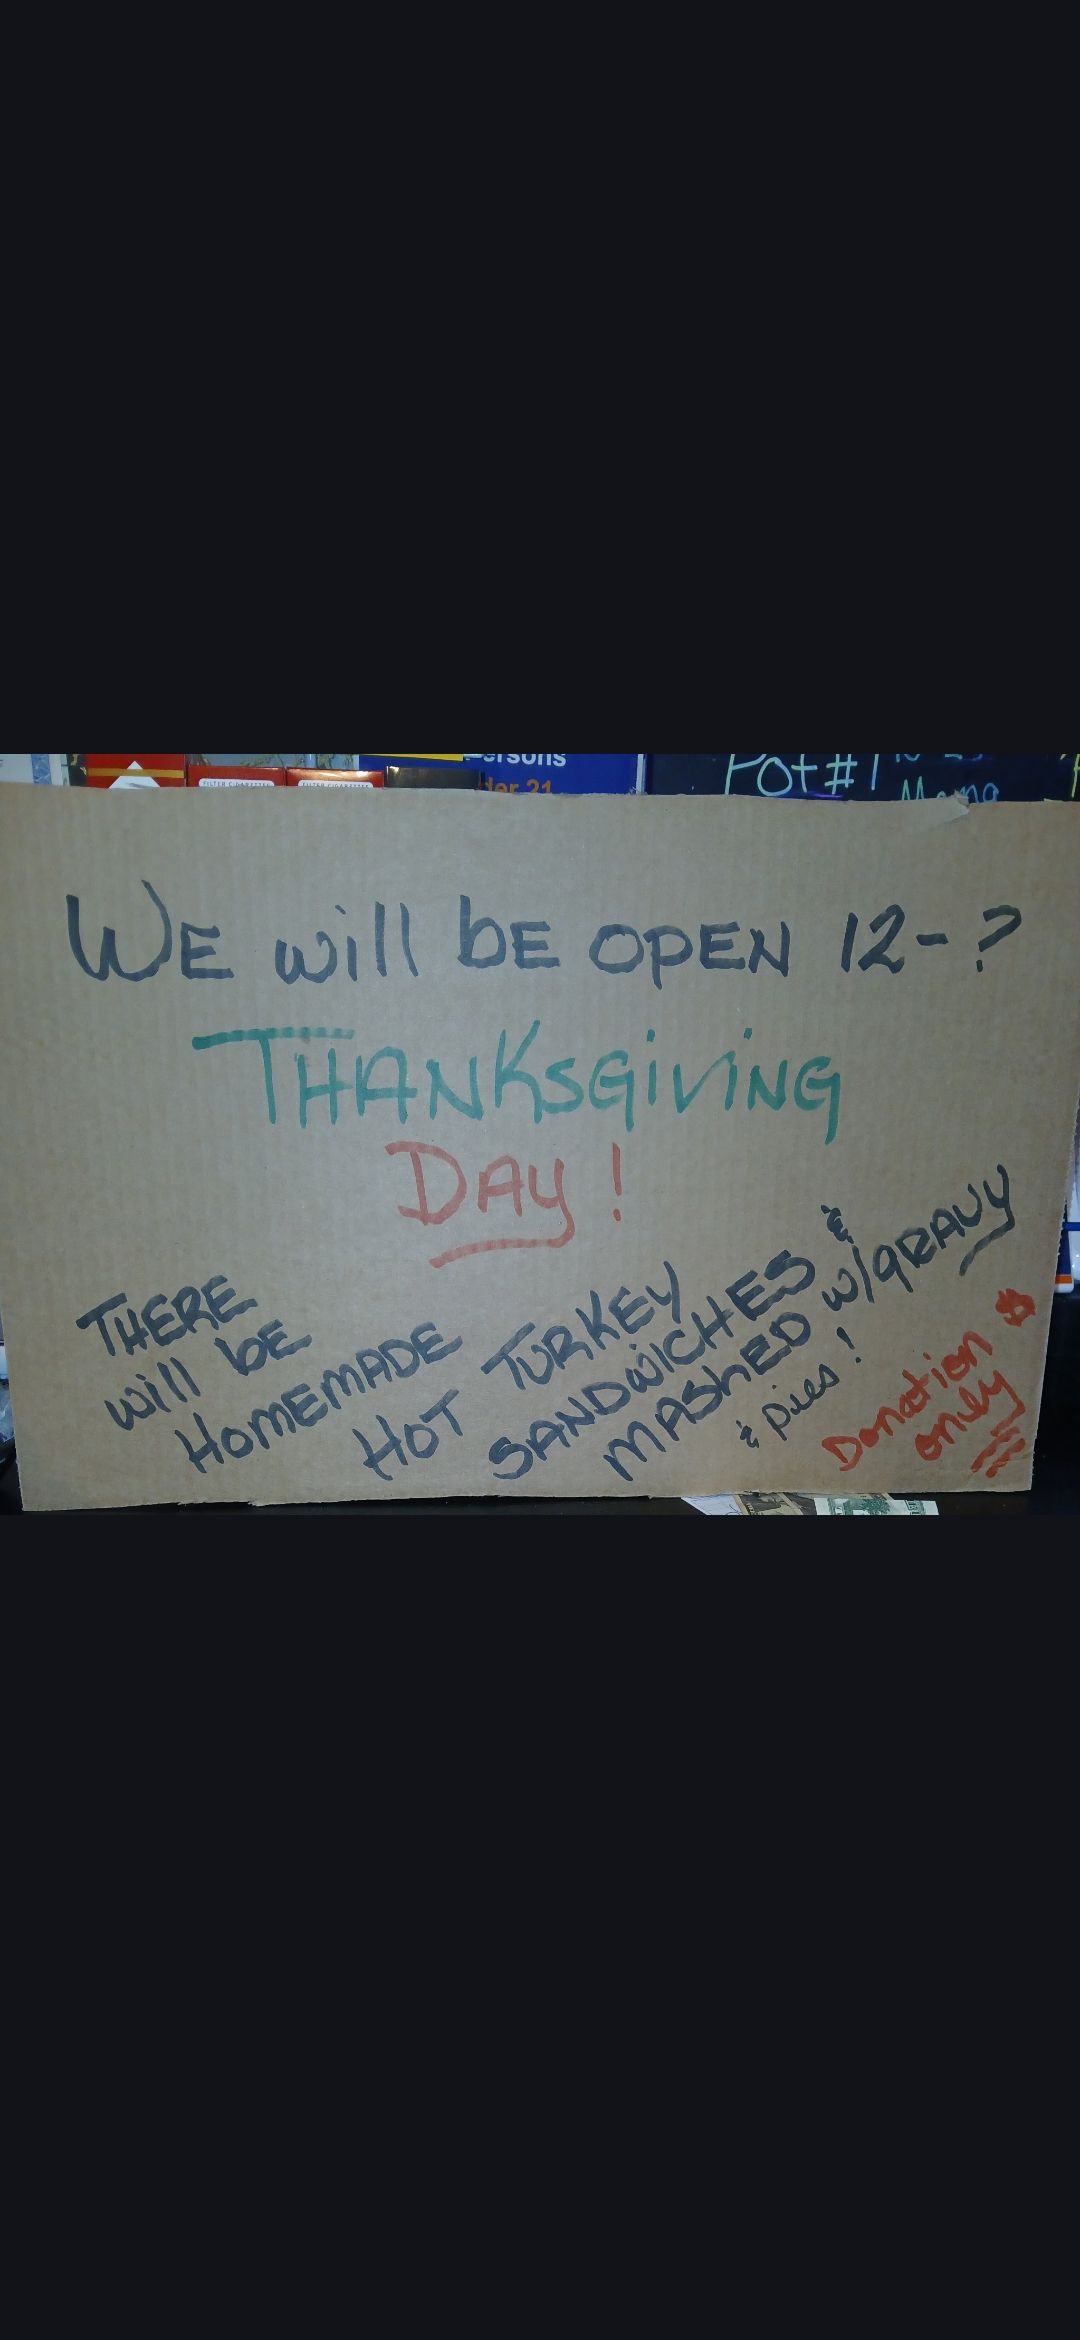 ersons
der 21
FILTER CIGARETTES
FILTER CIGARETTES
Pot #1
Mama
WE will bE OPEN 12-?
THANKSGiViNG
DAY!
THERE
will bE
HOMEMADE
HOT TURKEY
SANDWiCHES &
MASHED w/gRAVY
& pies!
Donation
only